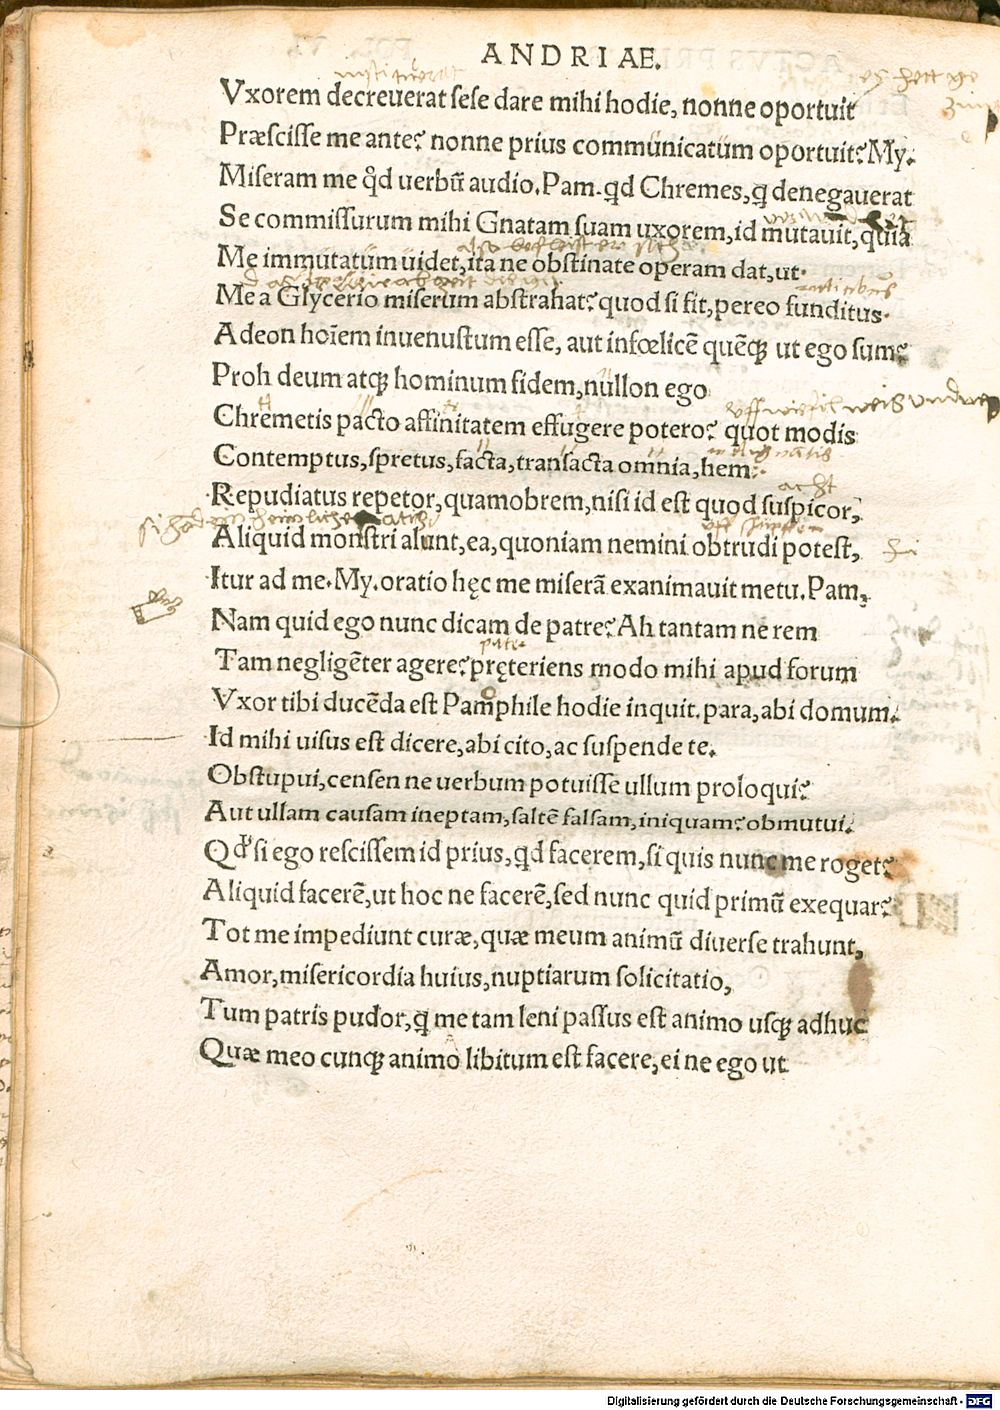 ANDRIAE.
Vxorem decreuerat sese dare mihi hodie, nonne oportuit
Præscisse me ante? nonne prius communicatum oportuit? My.
Miseram me qd uerbū audio. Pam. qd Chremes, q denegauerat
Se commissurum mihi Gnatam suam uxorem, id mutauit, quia
Me immutatum uidet, ita ne obstinate operam dat, ut
Me a Glycerio miserum abstrahat? quod si fit, pereo funditus.
Adeon hoīem inuenustum esse, aut infœlicē quēq; ut ego sum?
Proh deum atq; hominum fidem, nullon ego
Chremetis pacto affinitatem effugere potero? quot modis
Contemptus, spretus, facta, transacta omnia, hem:
acht
Repudiatus repetor, quamobrem, nisi id est quod suspicor,
Aliquid monstri alunt, ea, quoniam nemini obtrudi potest,
Itur ad me. My. oratio hęc me miserā exanimauit metu. Pam,
Nam quid ego nunc dicam de patre? Ah tantam ne rem
pater
Tam negligēter agere? pręteriens modo mihi apud forum
Vxor tibi ducēda est Pamphile hodie inquit. para, abi domum.
Id mihi uisus est dicere, abi cito, ac suspende te.
Obstupui, censen ne uerbum potuisse ullum proloqui?
Aut ullam causam ineptam, saltē falsam, iniquam? obmutui.
Qd si ego rescissem id prius, qd facerem, si quis nunc me roget?
Aliquid facerē, ut hoc ne facerē, sed nunc quid primū exequar?
Tot me impediunt curæ, quæ meum animū diuerse trahunt,
Amor, misericordia huius, nuptiarum solicitatio,
Tum patris pudor, q me tam leni passus est animo usq; adhuc
Quæ meo cunq; animo libitum est facere, ei ne ego ut
Digitalisierung gefördert durch die Deutsche Forschungsgemeinschaft - DFG